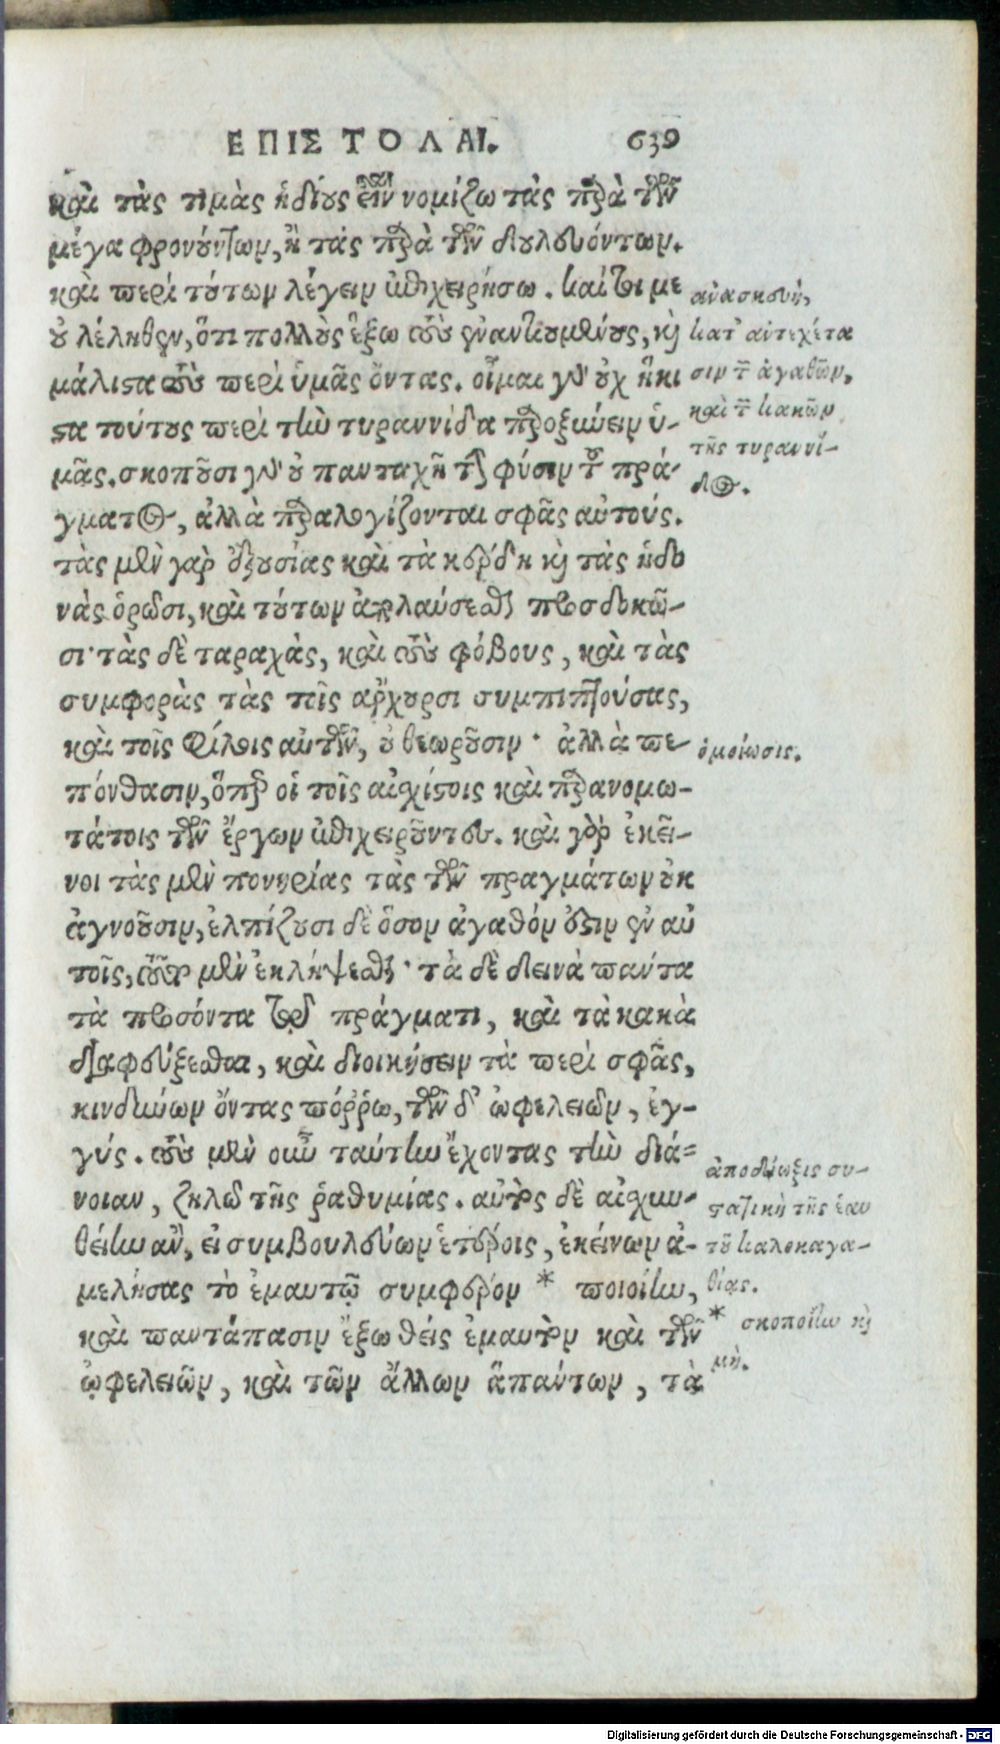 ΕΠΙΣΤΟΛΑΙ. 639
καὶ τὰς τιμὰς ἡδίους εἶναι νομίζω τὰς παρὰ τῶν
μέγα φρονούντων, ἢ τὰς παρὰ τῶν δουλευόντων.
καὶ περὶ τούτων λέγειν ἐπιχειρήσω. καί τοι με
οὐ λέληθεν, ὅτι πολλοὺς ἕξω τοὺς ἐναντιουμένους, καὶ
μάλιστα τοὺς περὶ ὑμᾶς ὄντας. οἶμαι γὰρ οὐχ ἥκι
στα τούτους περὶ τὴν τυραννίδα παροξύνειν ὑ-
μᾶς. σκοποῦσι γὰρ οὐ πανταχῆ τὴν φύσιν τοῦ πρά-
γματος, ἀλλὰ παραλογίζονται σφᾶς αὐτούς.
τὰς μὲν γὰρ ἐξουσίας καὶ τὰ κέρδη καὶ τὰς ἡδο
νὰς ὁρῶσι, καὶ τούτων ἀπολαύσεσθαι προσδοκῶ-
σι· τὰς δὲ ταραχὰς, καὶ τοὺς φόβους, καὶ τὰς
συμφορὰς τὰς τοῖς ἄρχουσι συμπιπτούσας,
καὶ τοῖς φίλοις αὐτῶν, οὐ θεωροῦσιν· ἀλλὰ πε-
πόνθασιν, ὅπερ οἱ τοῖς αἰσχίστοις καὶ παρανομω-
τάτοις τῶν ἔργων ἐπιχειροῦντες. καὶ γὰρ ἐκεῖ-
νοι τὰς μὲν πονηρίας τὰς τῶν πραγμάτων οὐκ
ἀγνοοῦσιν, ἐλπίζουσι δὲ ὅσον ἀγαθόν ἐστιν ἐν αὐ
τοῖς, τοῦτο μὲν ἐκλήψεσθαι· τὰ δὲ δεινὰ πάντα
τὰ προσόντα τῷ πράγματι, καὶ τὰ κακὰ
διαφεύξεσθαι, καὶ διοικήσειν τὰ περὶ σφᾶς,
κινδύνων ὄντας πόῤῥω, τῶν δ' ὠφελειῶν, ἐγ-
γύς. τοὺς μὲν οὖν ταύτην ἔχοντας τὴν διά-
νοιαν, ζηλῶ τῆς ῥαθυμίας. αὐτὸς δὲ αἰσχυν-
θείην ἂν, εἰ συμβουλεύων ἑτέροις, ἐκείνων ἀ-
μελήσας τὸ ἐμαυτῷ συμφέρον * ποιοίην,
καὶ παντάπασιν ἔξω θεὶς ἐμαυτὸν καὶ τῶν
ὠφελειῶν, καὶ τῶν ἄλλων ἁπάντων, τὰ
ἀνασκευὴ,
κατ' ἀντεξέτα
σιν τῶν ἀγαθῶν,
καὶ τῶν κακῶν
τῆς τυραννί-
δος.
ὁμοίωσις.
ἀποδίωξις συ-
στατικὴ τῆς ἑαυ
τοῦ καλοκαγα-
θίας.
* σκοποίην καὶ
μή.
Digitalisierung gefördert durch die Deutsche Forschungsgemeinschaft - DFG